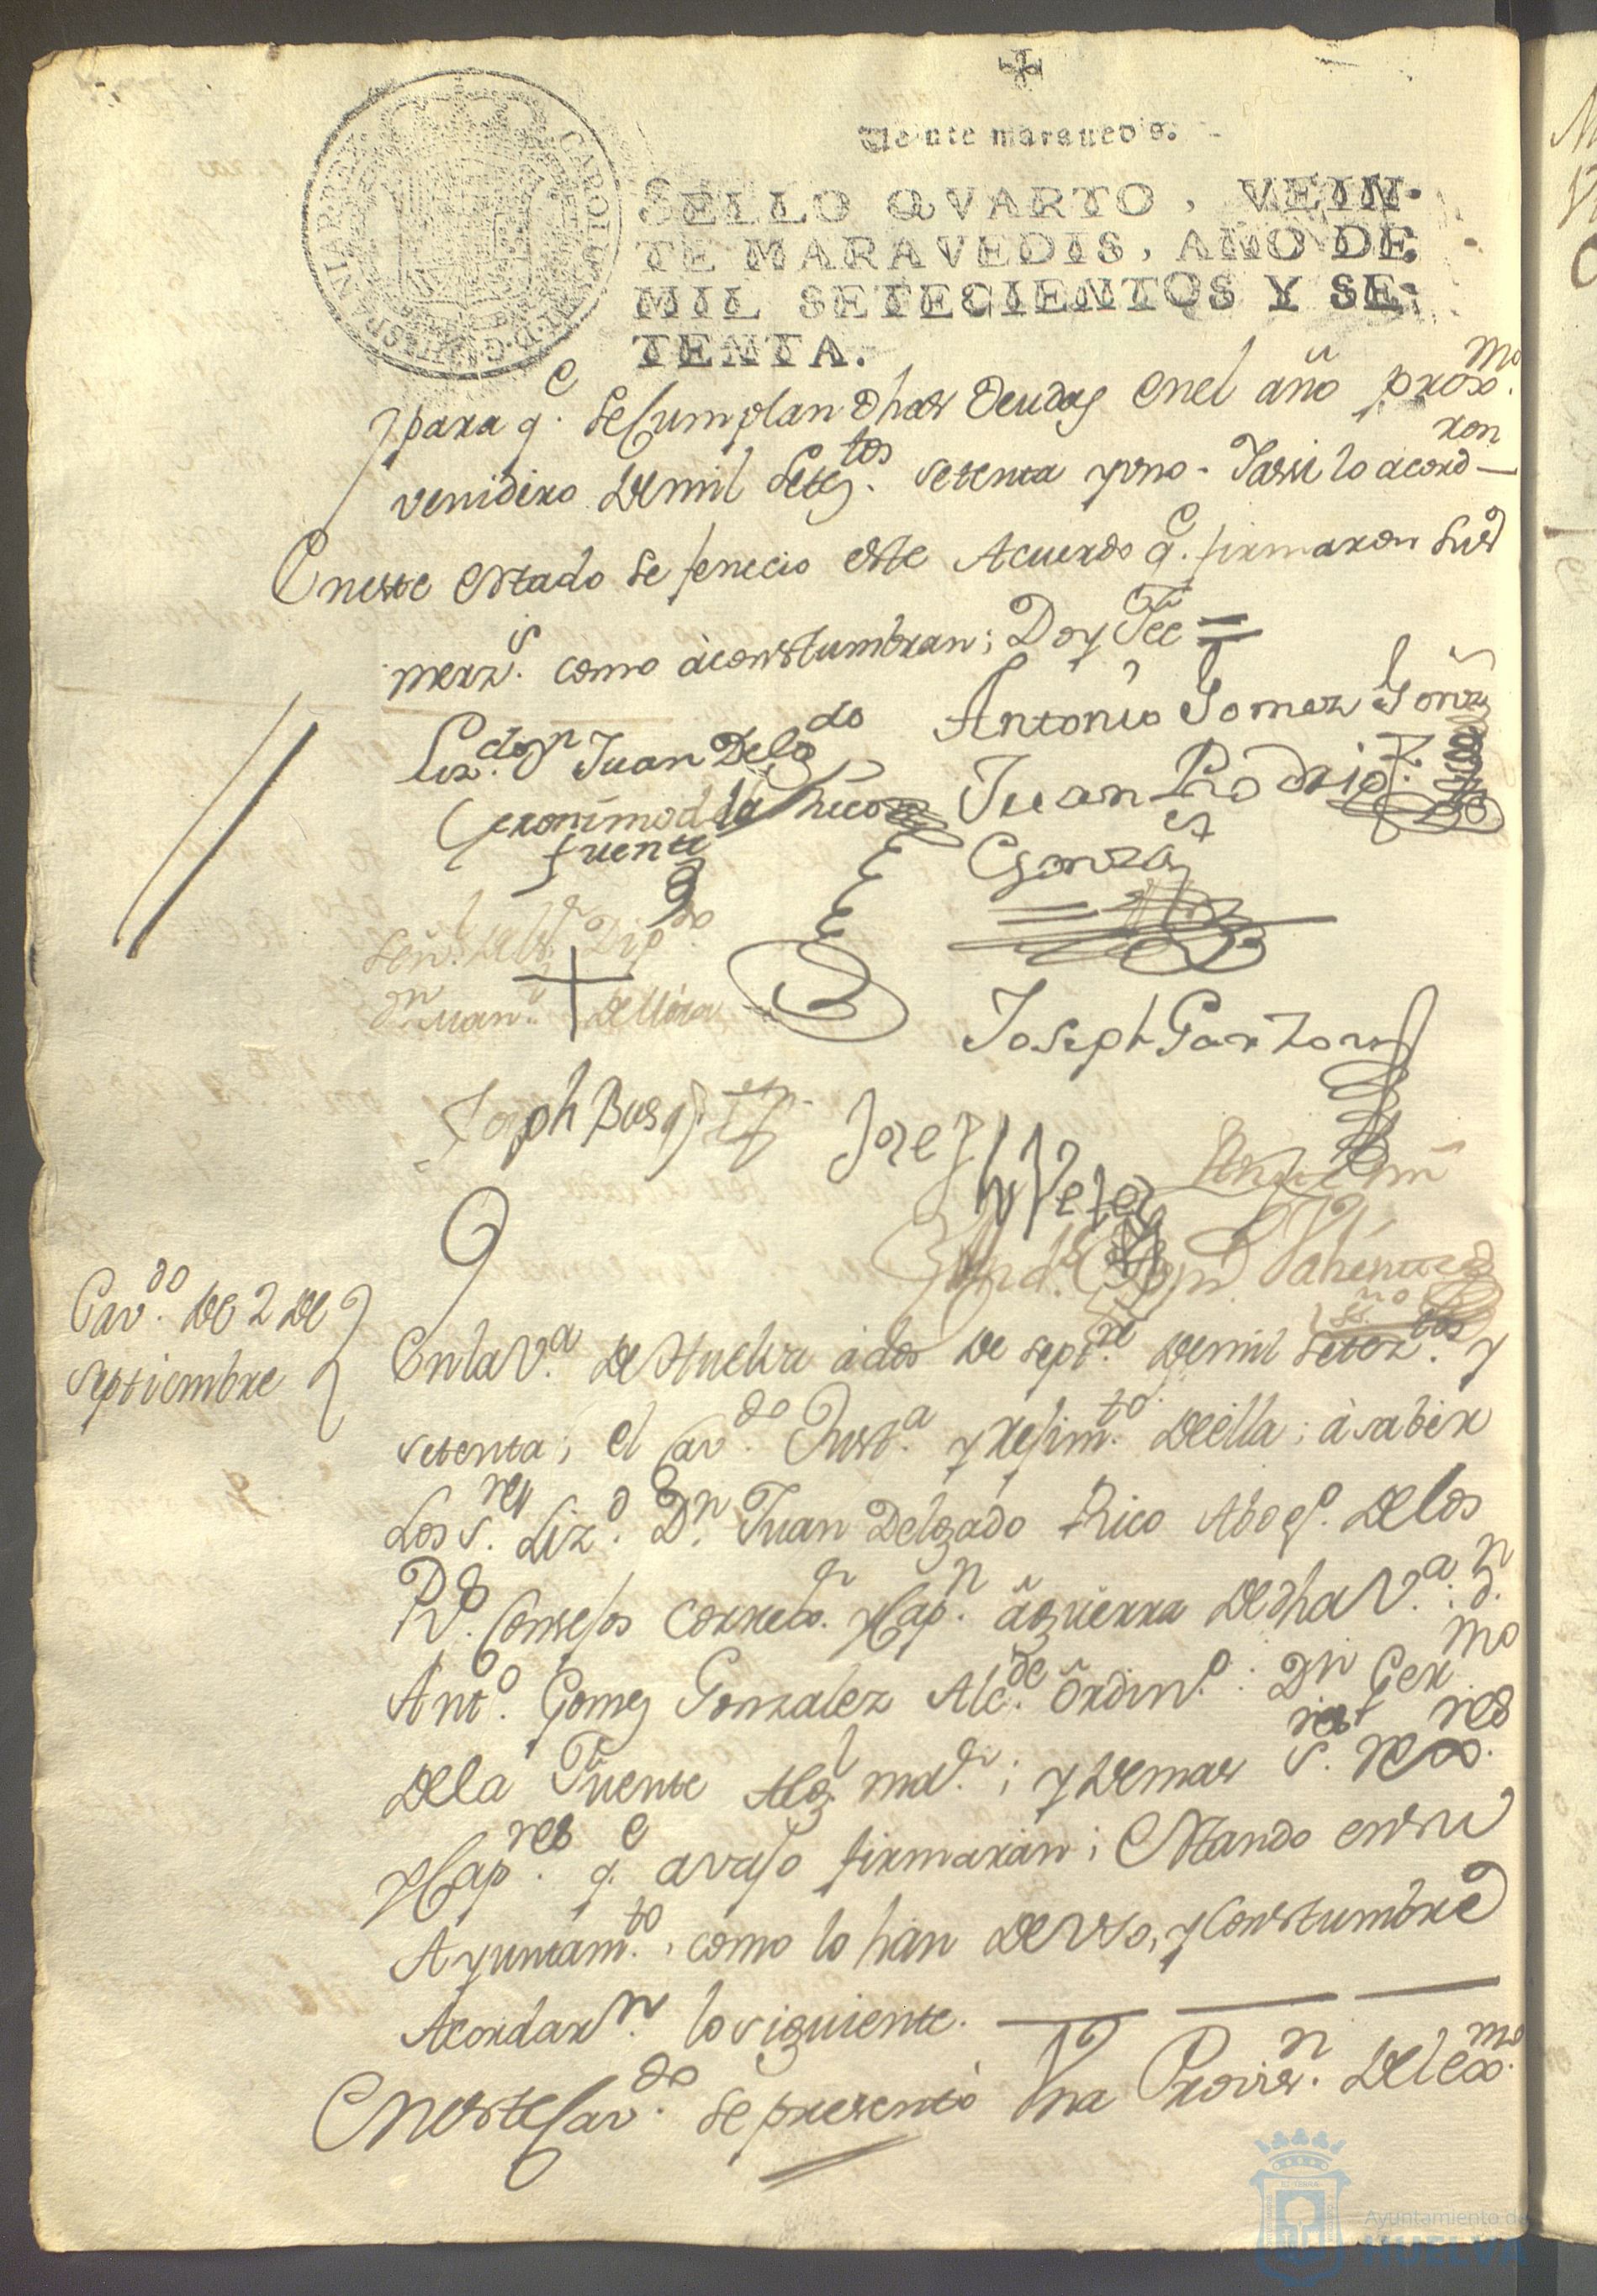 Veinte maravedis.
SELLO QVARTO, VEIN-
TE MARAVEDIS, AÑO DE
MIL SETECIENTOS Y SE-
TENTA.
CAROLUS III D.G. HISPANIAR. REX
para q.e se Cumplan dhas deudas en el año prox.mo
venidero de mil Setez.tos setenta y uno - Y assi lo acord.ron
En este estado se fenecio este Acuerdo q.e firmaron sus
merz.s como acostumbran; Doy Fee =
Liz.do Dn Juan Delg.do Antonio Gomez Gonz
Rico Juan Rodrig.z
Geronimo de la Gonza
fuente
Señ.l del S.r Dip.do
Dn Juan de Mora
Joseph Garzon
Joseph Busq Josef Vega Ante mi
Cav.do de 2 de
Septiembre
En la V.a de Huelva a dos de Sept.re de mil Setez.tos y
setenta; el Cav.do Just.a y Regim.to de ella; à saber
Los S.res Liz.do D.n Juan Delgado Rico Abog.o de los
R.s Consejos Correg.or y Cap.n à guerra de dha V.a: D.n
Ant.o Gomez Gonzalez Alc.de ordin.o: Dn Ger.mo
de la Fuente Alg.l ma.r; y demas S.res
y Cap.res q.e avajo firmaràn; Estando en su
Ayuntam.to, como lo han de uso, y Costumbre
Acordar.n lo siguiente.
En este Cav.do se presentò Vna Provis.n del ex.mo
Ayuntamiento de
HUELVA